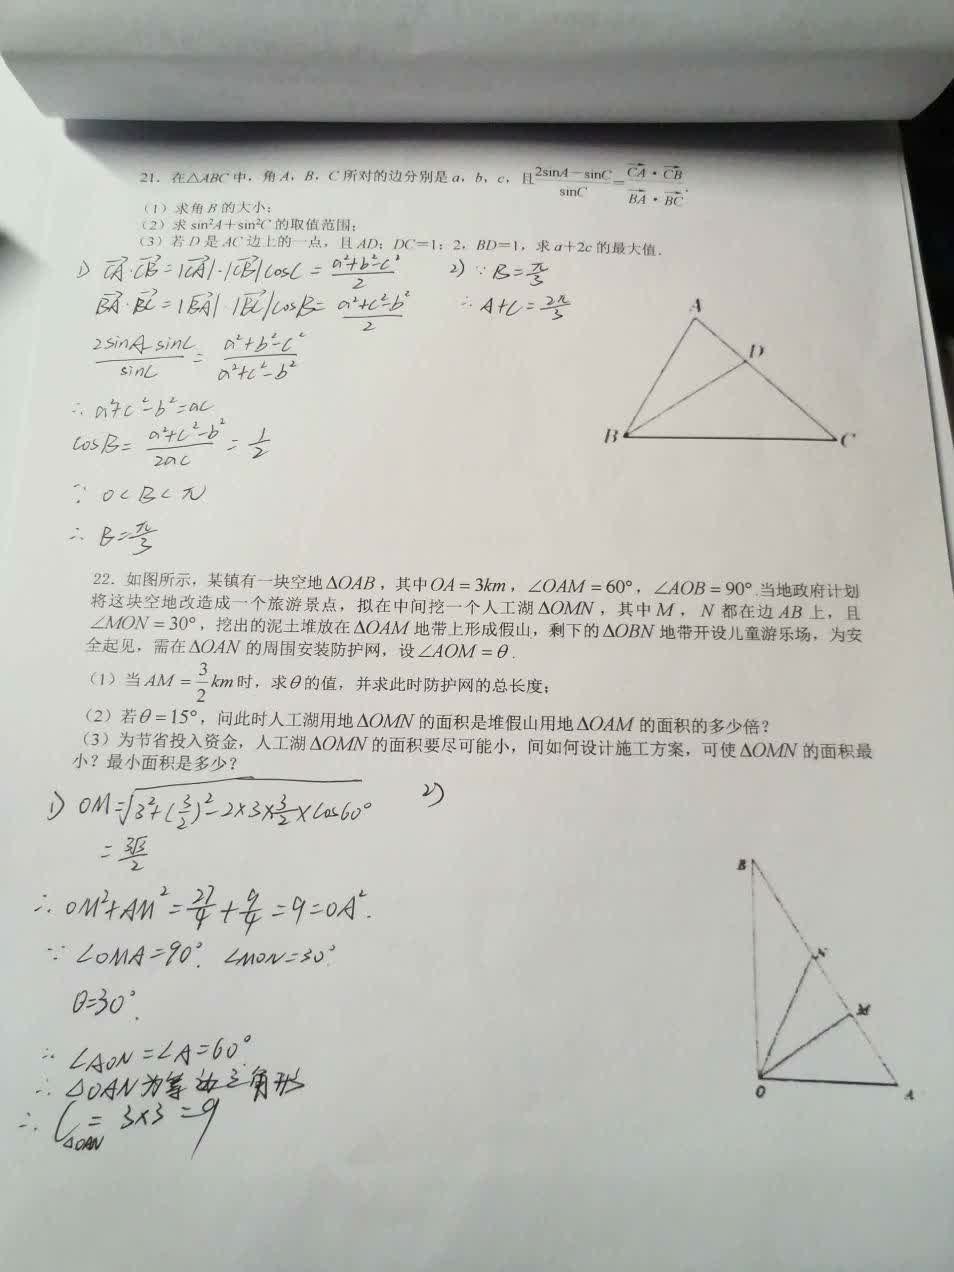 21. 在△ABC中，角A，B，C所对的边分别是a，b，c，且(2sinA－sinC)/sinC=(CA·CB)/(BA·BC).
(1) 求角B的大小;
(2) 求 sin²A+sin²C 的取值范围;
(3) 若D是AC边上的一点，且AD: DC=1: 2, BD=1, 求a+2c的最大值.
1) CA·CB=|CA|·|CB|cosC=(a²+b²-c²)/2
2) ∵B=π/3
BA·BC=|BA|·|BC|cosB=(a²+c²-b²)/2
∴A+C=2π/3
(2sinA-sinC)/sinC=(a²+b²-c²)/(a²+c²-b²)
∴a²+c²-b²=ac
cosB=(a²+c²-b²)/2ac=1/2
∵0<B<π
∴B=π/3
A
D
B
C
22. 如图所示，某镇有一块空地ΔOAB，其中OA=3km，∠OAM=60°，∠AOB=90°.当地政府计划
将这块空地改造成一个旅游景点，拟在中间挖一个人工湖ΔOMN，其中M，N都在边AB上，且
∠MON=30°，挖出的泥土堆放在ΔOAM地带上形成假山，剩下的ΔOBN地带开设儿童游乐场，为安
全起见，需在ΔOAN的周围安装防护网，设∠AOM=θ.
(1) 当AM=3/2km时，求θ的值，并求此时防护网的总长度;
(2) 若θ=15°，问此时人工湖用地ΔOMN的面积是堆假山用地ΔOAM的面积的多少倍?
(3) 为节省投入资金，人工湖ΔOMN的面积要尽可能小，问如何设计施工方案，可使ΔOMN的面积最
小? 最小面积是多少?
1) OM=√(3²+(3/2)²-2×3×3/2×cos60°)
2)
=3√3/2
∴OM²+AM²=27/4+9/4=9=OA².
∵∠OMA=90°. ∠MON=30°.
θ=30°.
∴∠AON=∠A=60°
∴△OAN为等边三角形
∴C△OAN=3×3=9
B
N
M
O
A